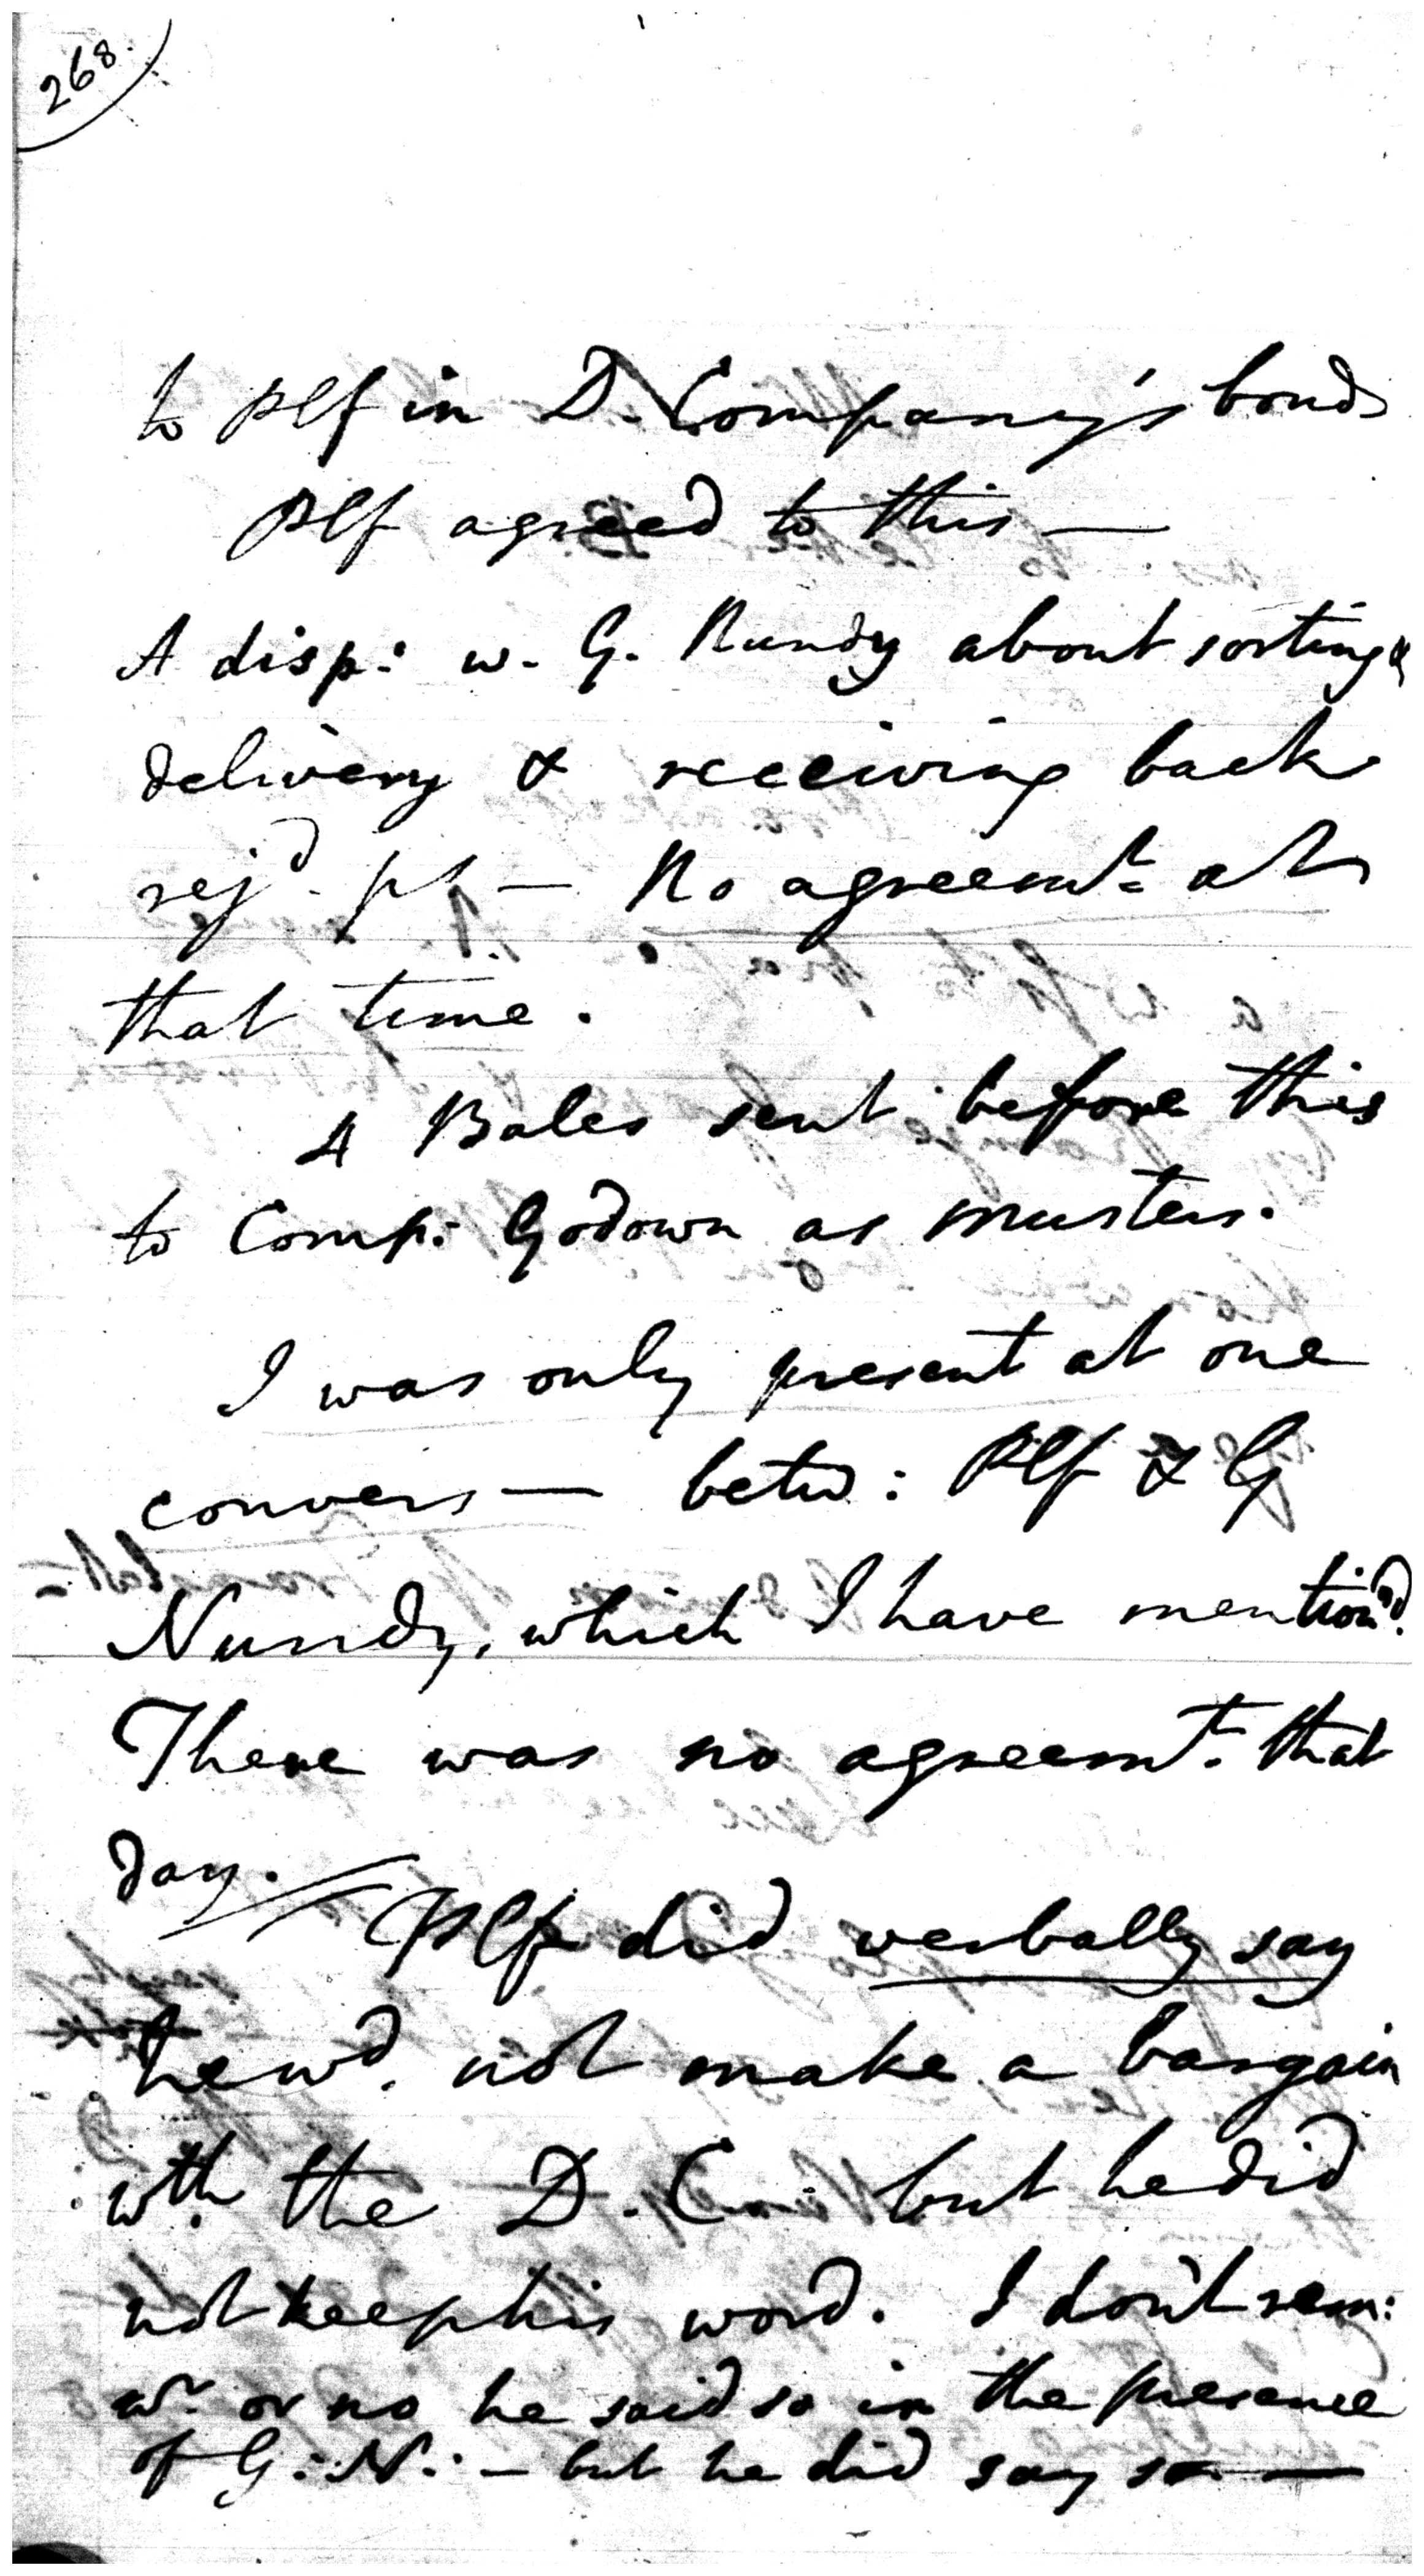 268.
to Plf in D. Company's bonds
Plf agreed to this —
A disp: w. G. Nundy about sorting &
delivery & receiving back
rej'd. ps — No agreemt. at
that time.
4 Bales sent before this
to Comp: Godown as musters.
I was only present at one
convers — betw: Plf & G
Nundy, which I have mention'd.
There was no agreemt. that
day.
Plf did verbally say
he wd. not make a bargain
wth. the D. C. but he did
not keep his word. I don't rem:
wr. or no he said so in the presence
of G: N: — but he did say so —